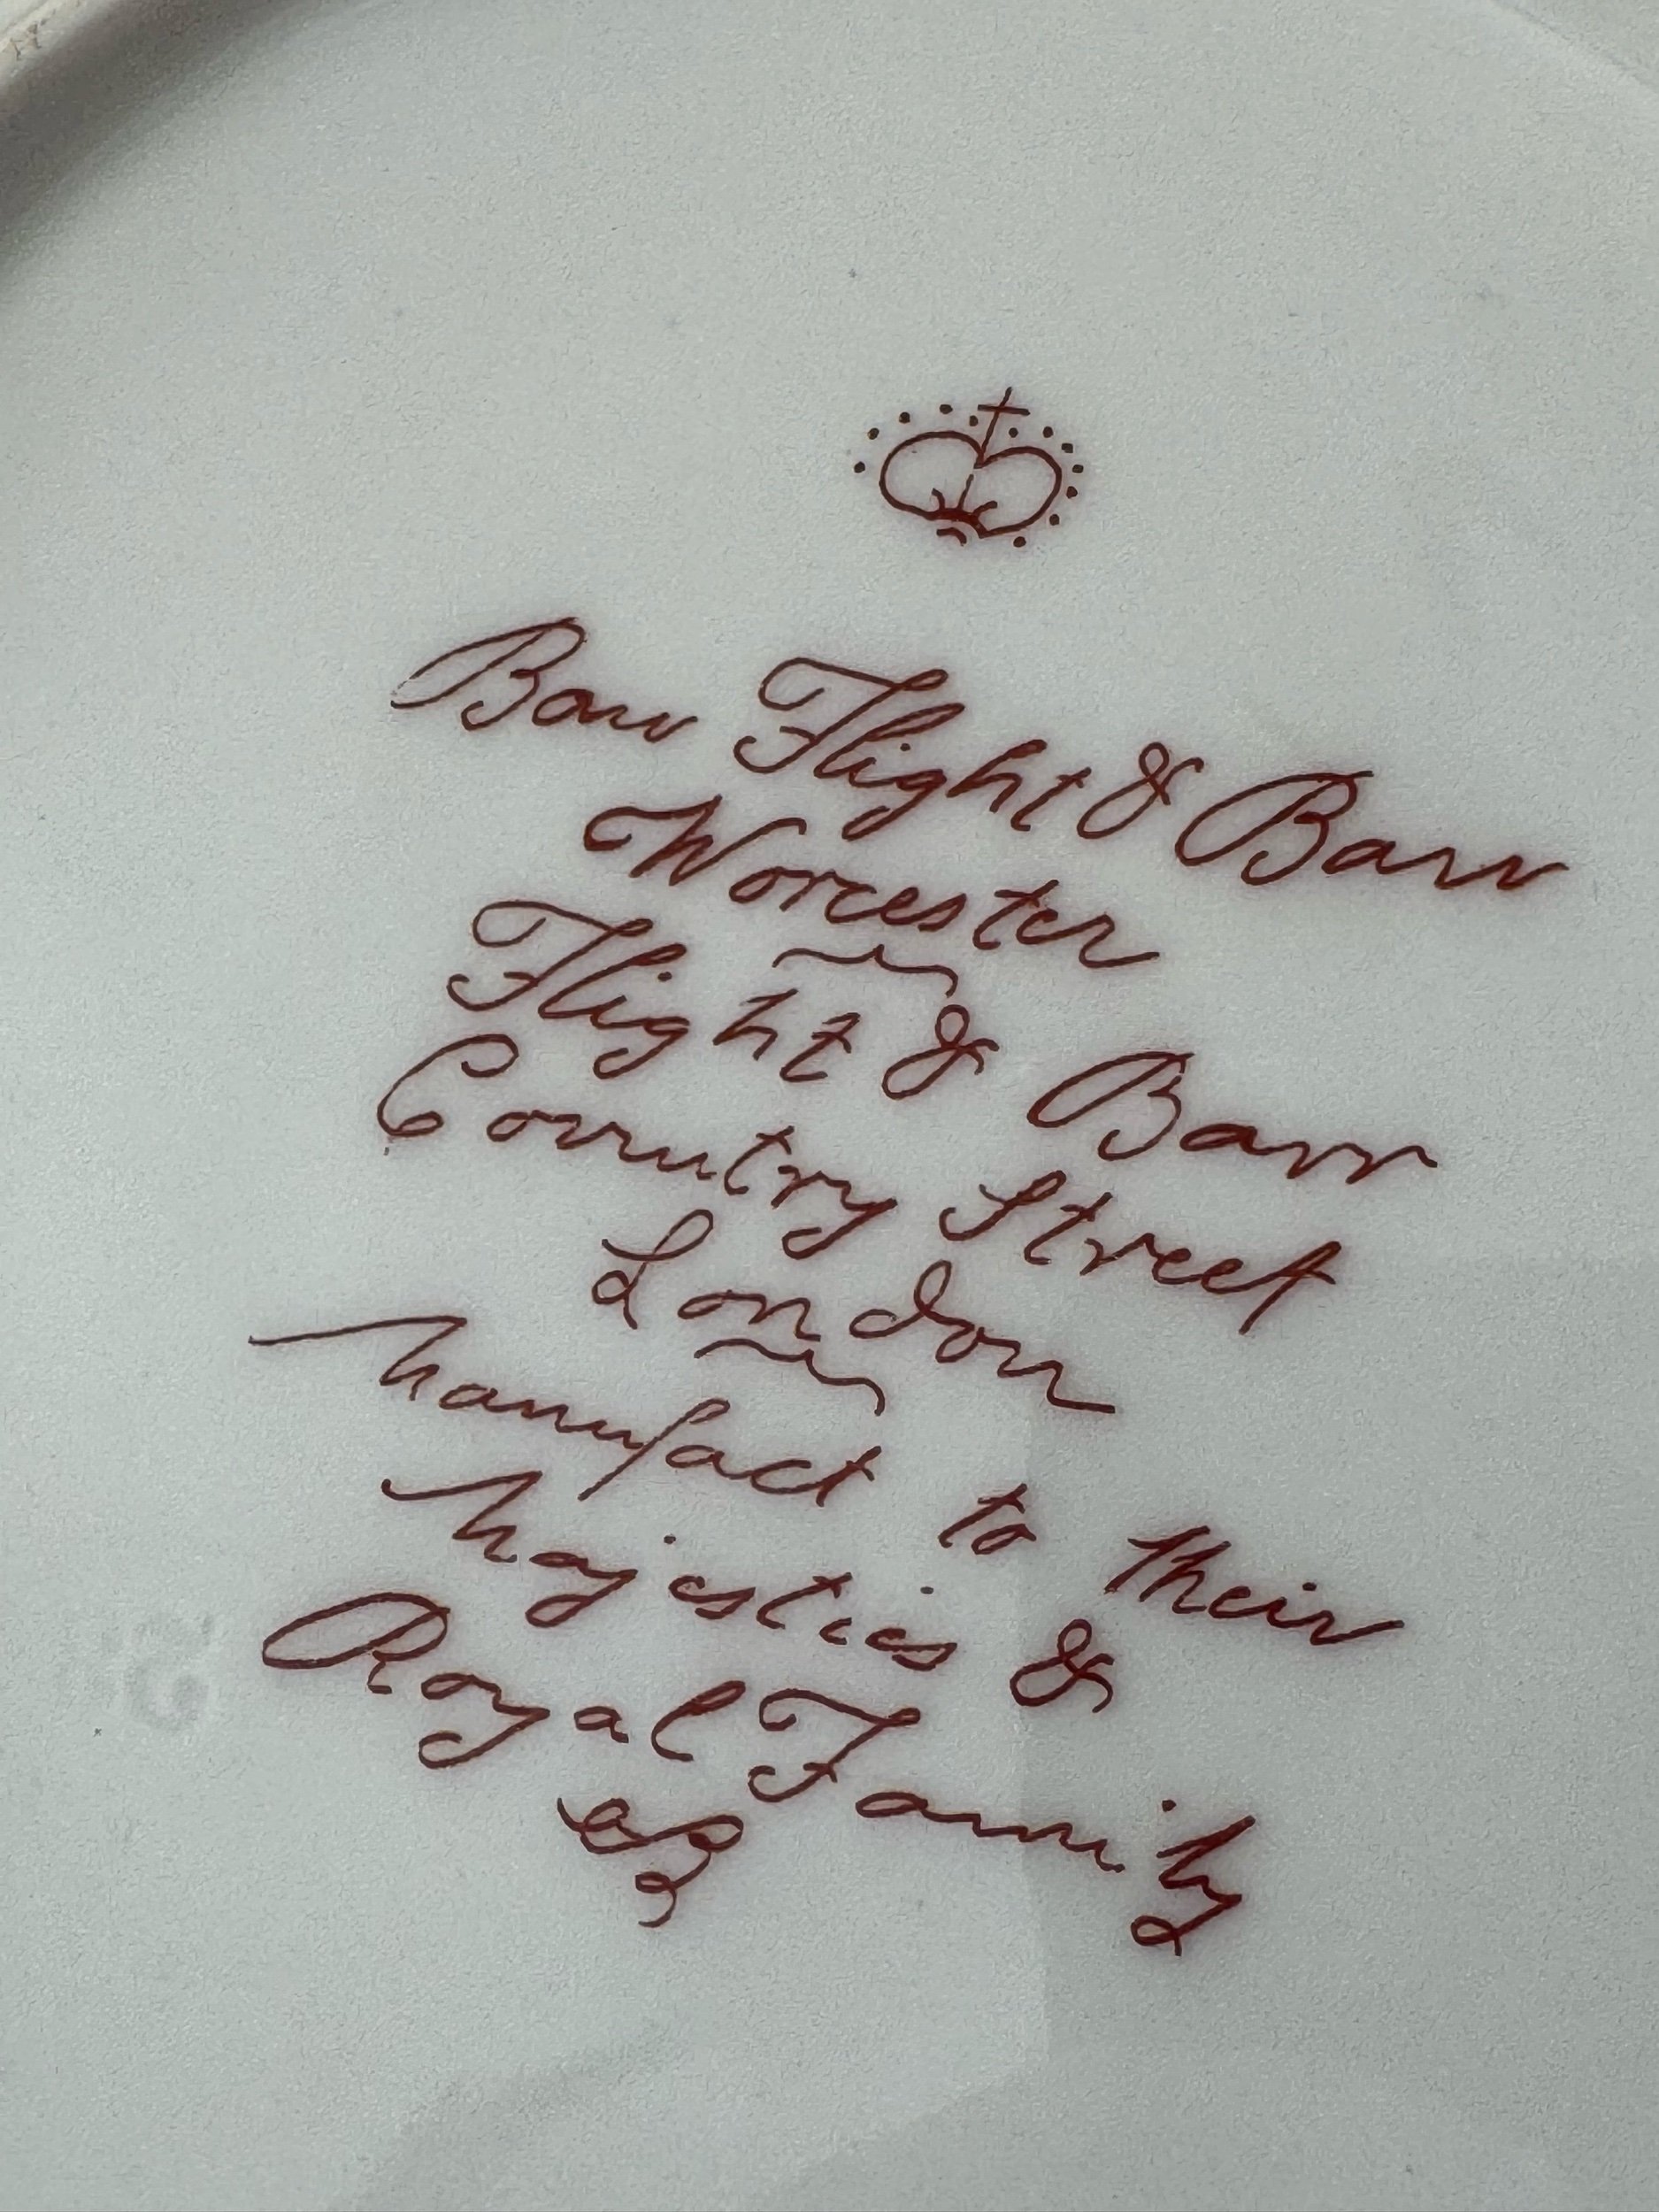 Barr Flight & Barr
Worcester
Flight & Barr
Coventry Street
London
Manufact to their
Majesties &
Royal Family